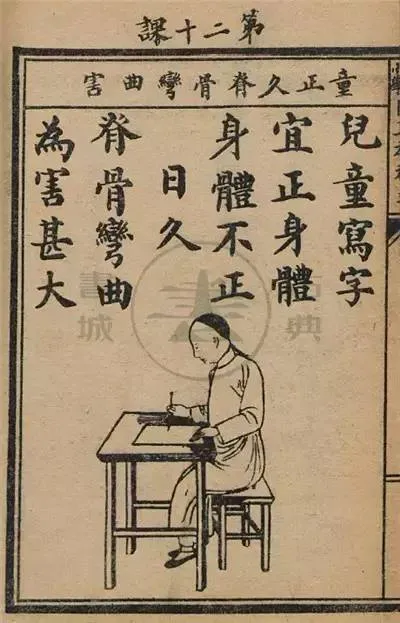 第二十課
童正久脊骨彎曲害
兒童寫字
宜正身體
身體不正
日久
脊骨彎曲
為害甚大
典
書城